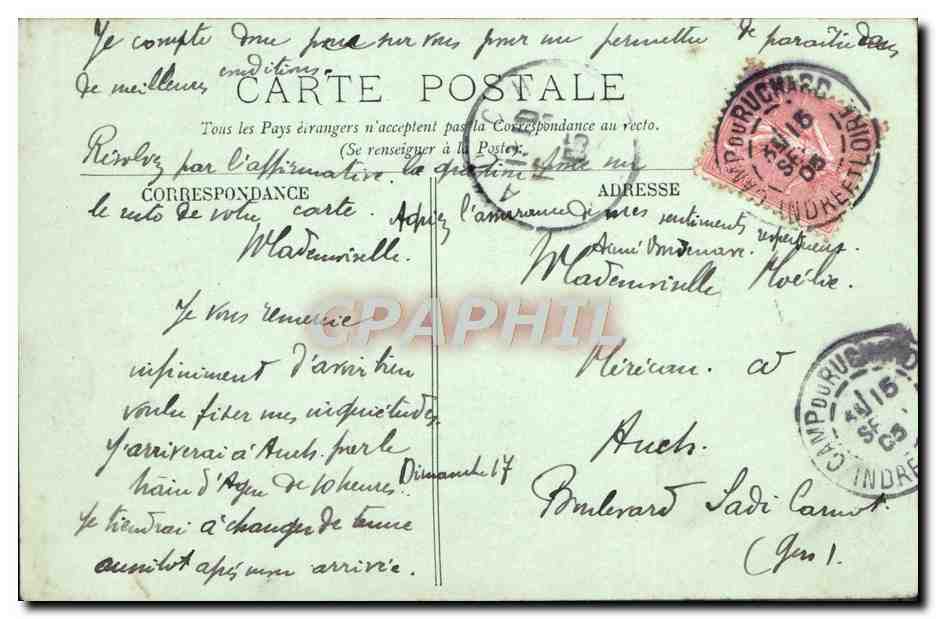 Je compte donc pour sur vous pour me permettre de paraître dans
de meilleures conditions.
CARTE POSTALE
Tous les Pays étrangers n'acceptent pas la Correspondance au recto.
(Se renseigner à la Poste).
Résolvez par l'affirmative la question
CORRESPONDANCE
ADRESSE
le recto de votre carte. Agréez l'assurance de mes sentiments respectueux.
Mademoiselle.
Je vous remercie
infiniment d'avoir bien
voulu fixer mes inquiétudes.
J'arriverai à Auch par le
train d'Agen de 10 heures. Dimanche 17
Je tiendrai à changer de tenue
aussitôt après mon arrivée.
Mademoiselle
Méricam à
Auch.
Boulevard Sadi Carnot.
(Gers).
CAMP DU RUCHARD
INDRE ET LOIRE
15
SEPT
05
CAMP DU RUCHARD
15
SEPT
05
INDRE
CPAPHIL